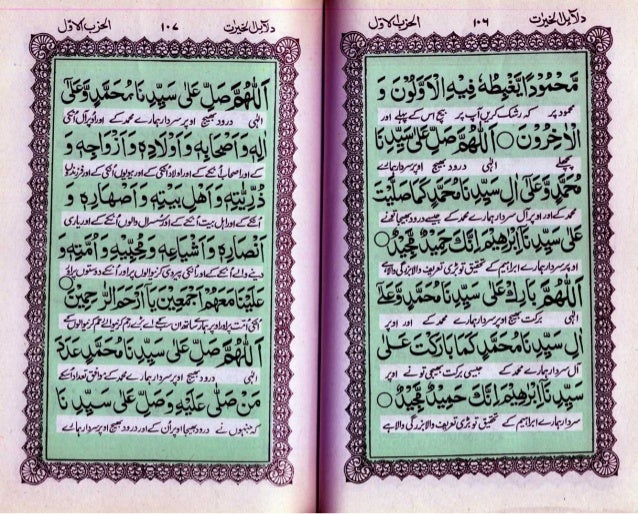 دلائل الخیرت ١٠٦ الحزب الاوّل
مَّحْمُوْدًا يَّغْبِطُهٗ فِيْهِ الْاَوَّلُوْنَ وَ
محمود پر کہ رشک کریں آپ پر بیچ اس کے پہلے اور
الْاٰخِرُوْنَ ○ اَللّٰهُمَّ صَلِّ عَلٰى سَيِّدِنَا
پچھلے الٰہی درود بھیج اوپر سردار ہمارے
مُحَمَّدٍ وَّعَلٰٓى اٰلِ سَيِّدِنَا مُحَمَّدٍ كَمَا صَلَّيْتَ
محمد کے اور اوپر آل سردار ہمارے محمد کے جیسے درود بھیجا تونے
عَلٰى سَيِّدِنَآ اِبْرٰهِيْمَ اِنَّكَ حَمِيْدٌ مَّجِيْدٌ ○
اوپر سردار ہمارے ابراہیم کے تحقیق تو بڑی تعریف والا بزرگی والا ہے
اَللّٰهُمَّ بَارِكْ عَلٰى سَيِّدِنَا مُحَمَّدٍ وَّعَلٰٓى
الٰہی برکت بھیج اوپر سردار ہمارے محمد کے اور اوپر
اٰلِ سَيِّدِنَا مُحَمَّدٍ كَمَا بَارَكْتَ عَلٰى
آل سردار ہمارے محمد کے جیسی برکت بھیجی تونے اوپر
سَيِّدِنَآ اِبْرٰهِيْمَ اِنَّكَ حَمِيْدٌ مَّجِيْدٌ ○
سردار ہمارے ابراہیم کے تحقیق تو بڑی تعریف والا بزرگی والا ہے
دلائل الخیرت ١٠٧ الحزب الاوّل
اَللّٰهُمَّ صَلِّ عَلٰى سَيِّدِنَا مُحَمَّدٍ وَّعَلٰٓى
الٰہی درود بھیج اوپر سردار ہمارے محمد کے اور اوپر آل انکی
اٰلِهٖ وَاَصْحَابِهٖ وَاَوْلَادِهٖ وَاَزْوَاجِهٖ وَ
کے اور اصحاب انکے کے اور اولاد انکی کے اور بیویوں انکی کے اور
ذُرِّيَّتِهٖ وَاَهْلِ بَيْتِهٖ وَاَصْهَارِهٖ وَ
انکے کے اور اہل بیت انکے کے اور سسرال والوں انکے کے اور
اَنْصَارِهٖ وَاَشْيَاعِهٖ وَمُحِبِّيْهِ وَاُمَّتِهٖ وَ
دینے والے انکے کے اور انکی پیروی کرنیوالوں پر اور انکے دوستوں پر اور
عَلَيْنَا مَعَهُمْ اَجْمَعِيْنَ يَآ اَرْحَمَ الرّٰحِمِيْنَ ○
انکی امت پر اور اوپر ہمارے ساتھ ان سب کے اے بڑے رحم کرنیوالے رحم کرنیوالوں کے
اَللّٰهُمَّ صَلِّ عَلٰى سَيِّدِنَا مُحَمَّدٍ عَدَدَ
الٰہی درود بھیج اوپر سردار ہمارے محمد کے موافق تعداد اسکے
مَنْ صَلّٰى عَلَيْهِ وَصَلِّ عَلٰى سَيِّدِنَا
کہ جنہوں نے درود بھیجا اوپر اُن کے اور درود بھیج اوپر سردار ہمارے